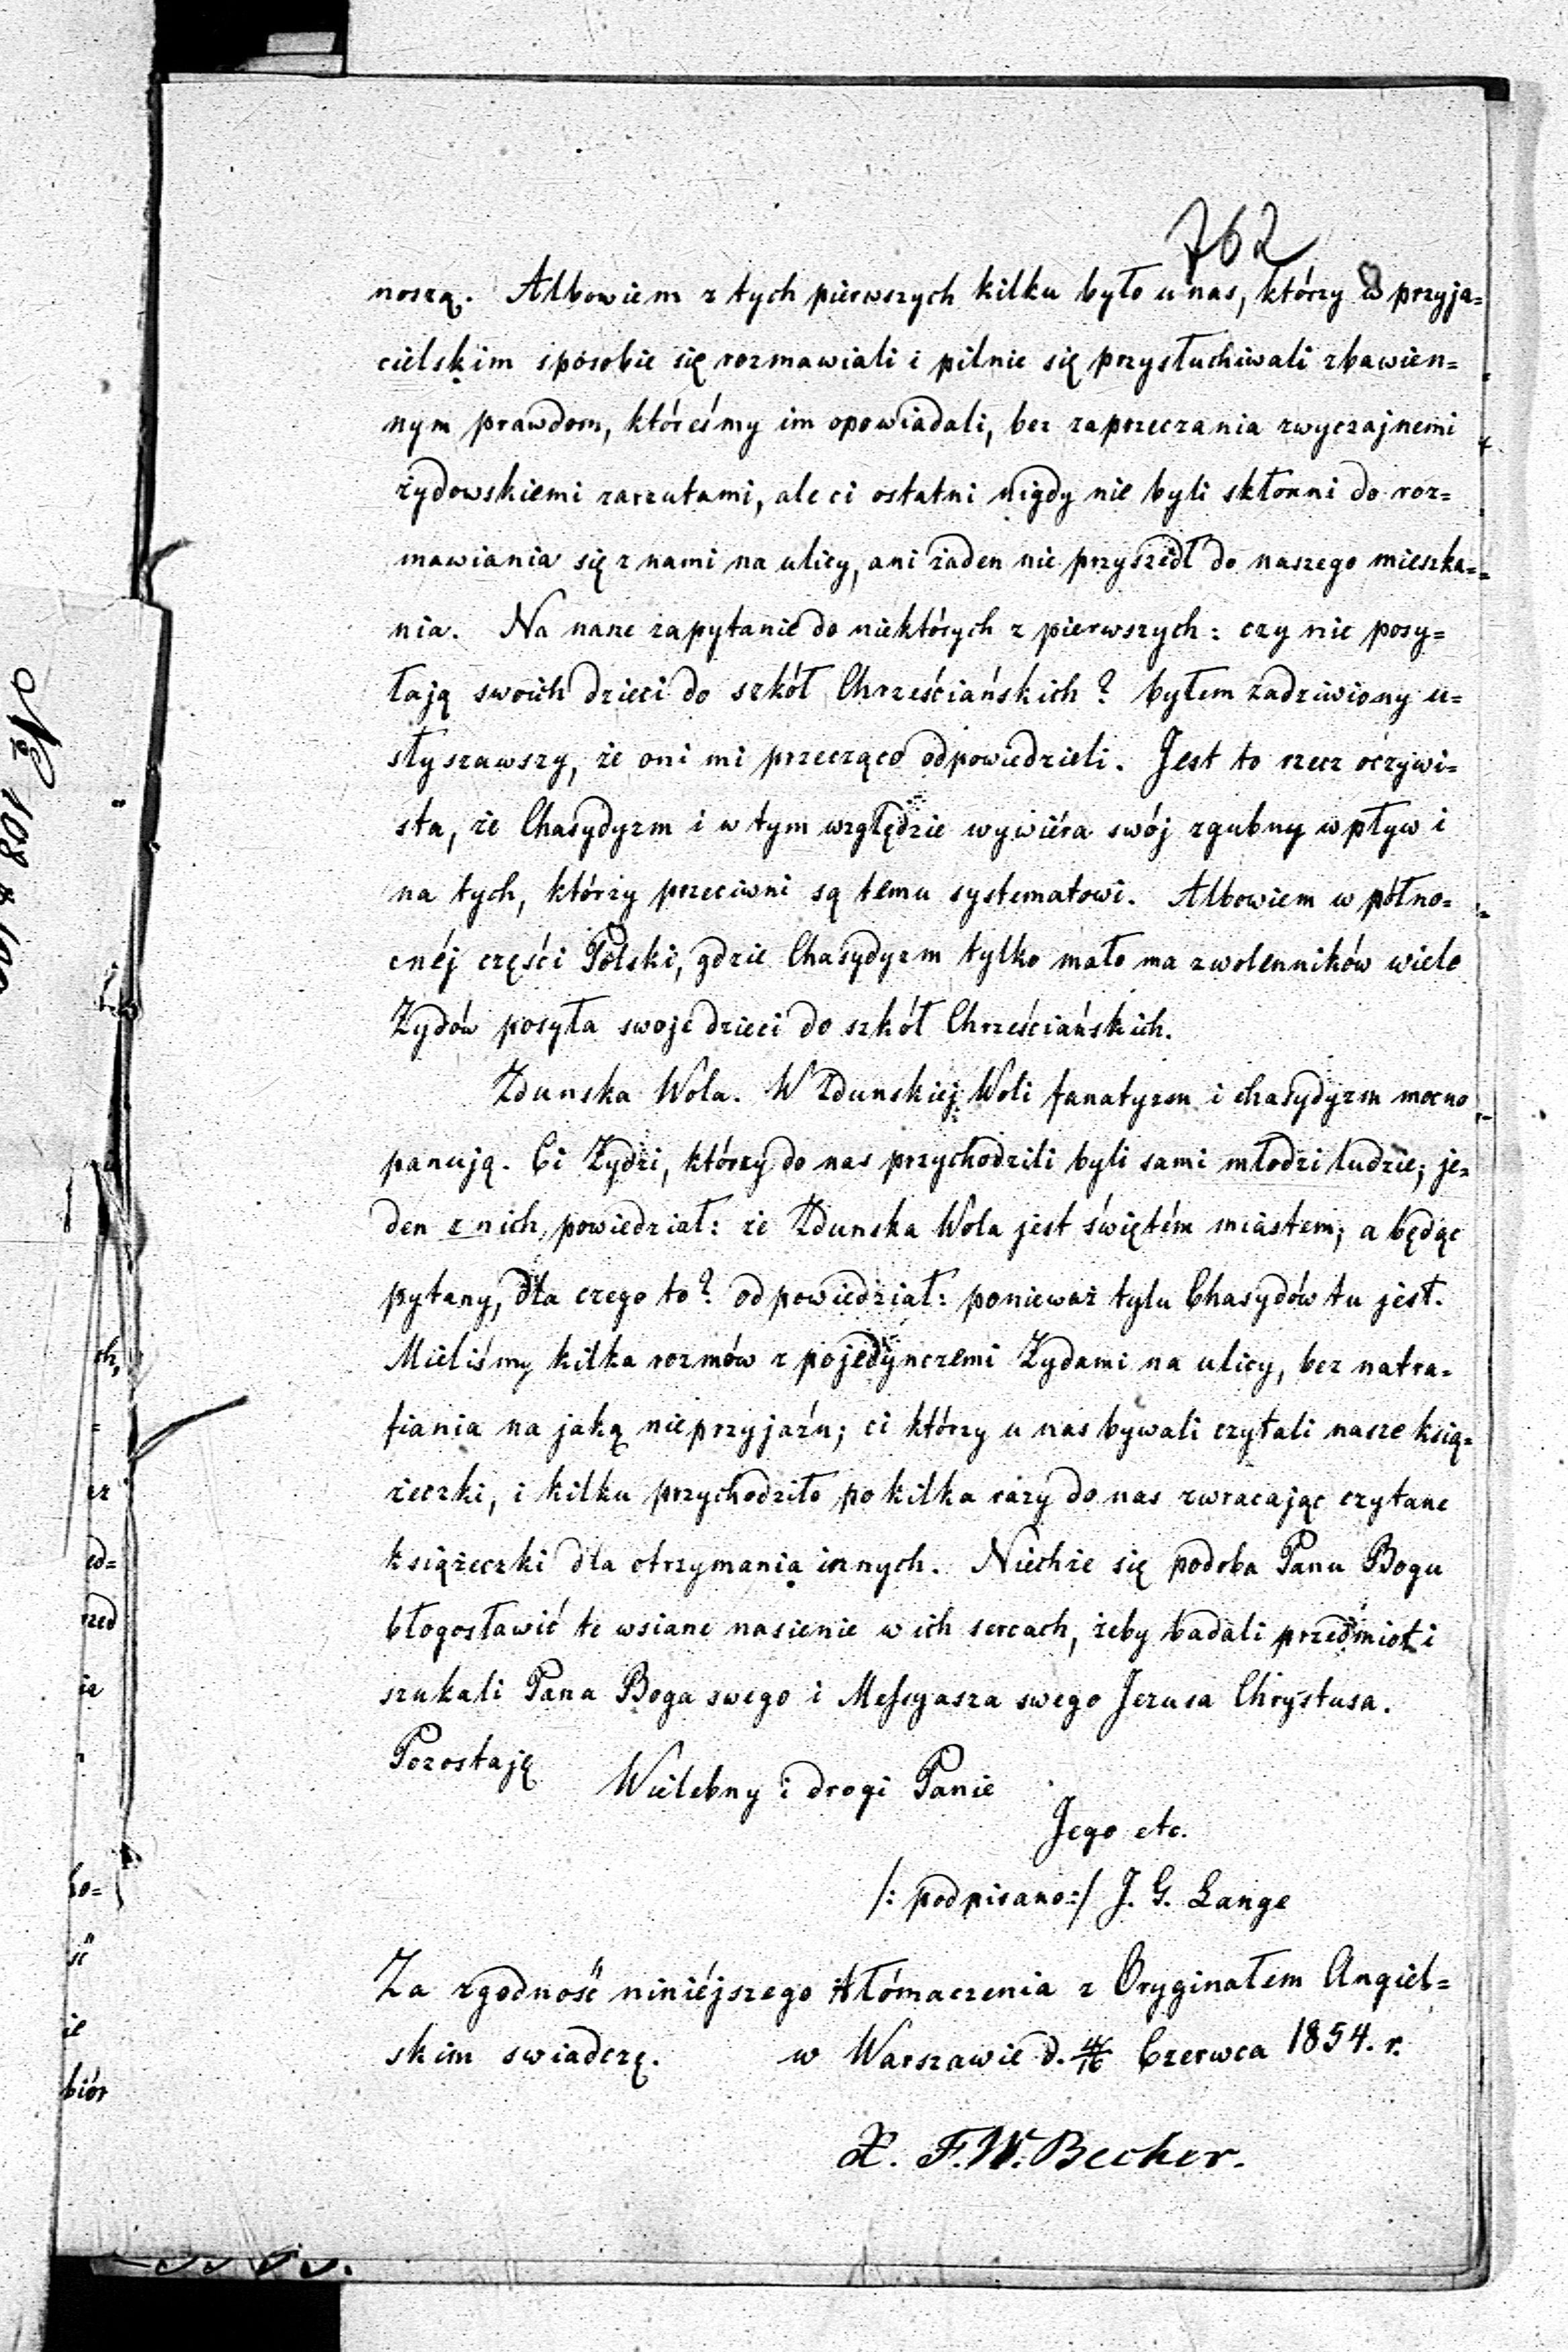 762
noszą. Albowiem z tych pierwszych kilku było u nas, którzy w przyja=
cielskim sposobie się rozmawiali i pilnie się przysłuchiwali zbawien=
nym prawdom, któreśmy im opowiadali, bez zaprzeczania zwyczajnemi
żydowskiemi zarzutami, ale ci ostatni nigdy nie byli skłonni do roz=
mawiania się z nami na ulicy, ani żaden nie przyszedł do naszego mieszka=
nia. Na nane zapytanie do niektórych z pierwszych: czy nie posy=
łają swoich dzieci do szkół Chrześciańskich? byłem zadziwiony u=
słyszawszy, że oni mi przecząco odpowiedzieli. Jest to rzecz oczywi=
sta, że Chasydyzm i w tym względzie wywiéra swój zgubny wpływ i
na tych, którzy przeciwni są temu systematowi. Albowiem w półno=
cnéj części Polski, gdzie Chasydyzm tylko mało ma zwolenników wiele
Żydów posyła swoje dzieci do szkół Chrześciańskich.
Zdunska Wola. W Zdunskiej Woli fanatyzm i chasydyzm mocno
panują. Ci Żydzi, którzy do nas przychodzili byli sami młodzi ludzie; je=
den z nich powiedział: że Zdunska Wola jest świętém miastem; a będąc
pytany, dla czego to? odpowiedział: ponieważ tylu Chasydów tu jest.
Mieliśmy kilka rozmów z pojedynczemi Żydami na ulicy, bez natra=
fiania na jaką nieprzyjaźń; ci którzy u nas bywali czytali nasze ksią=
żeczki, i kilku przychodziło po kilka razy do nas zwracając czytane
książeczki dla otrzymania innych. Niechże się podoba Panu Bogu
błogosławić te wsiane nasienie w ich sercach, żeby badali przedmiot i
szukali Pana Boga swego i Messyasza swego Jezusa Chrystusa.
Pozostaję
Wielebny i drogi Panie
Jego etc.
/: podpisano:/ J. G. Lange
Za zgodność niniéjszego tłómaczenia z Oryginałem Angiel=
skim swiadczę. w Warszawie d. 4/16 Czerwca 1854. r.
X. F. W. Becker.
ch,
er
ed=
rzed
ie
ho=
ść
ie
biór